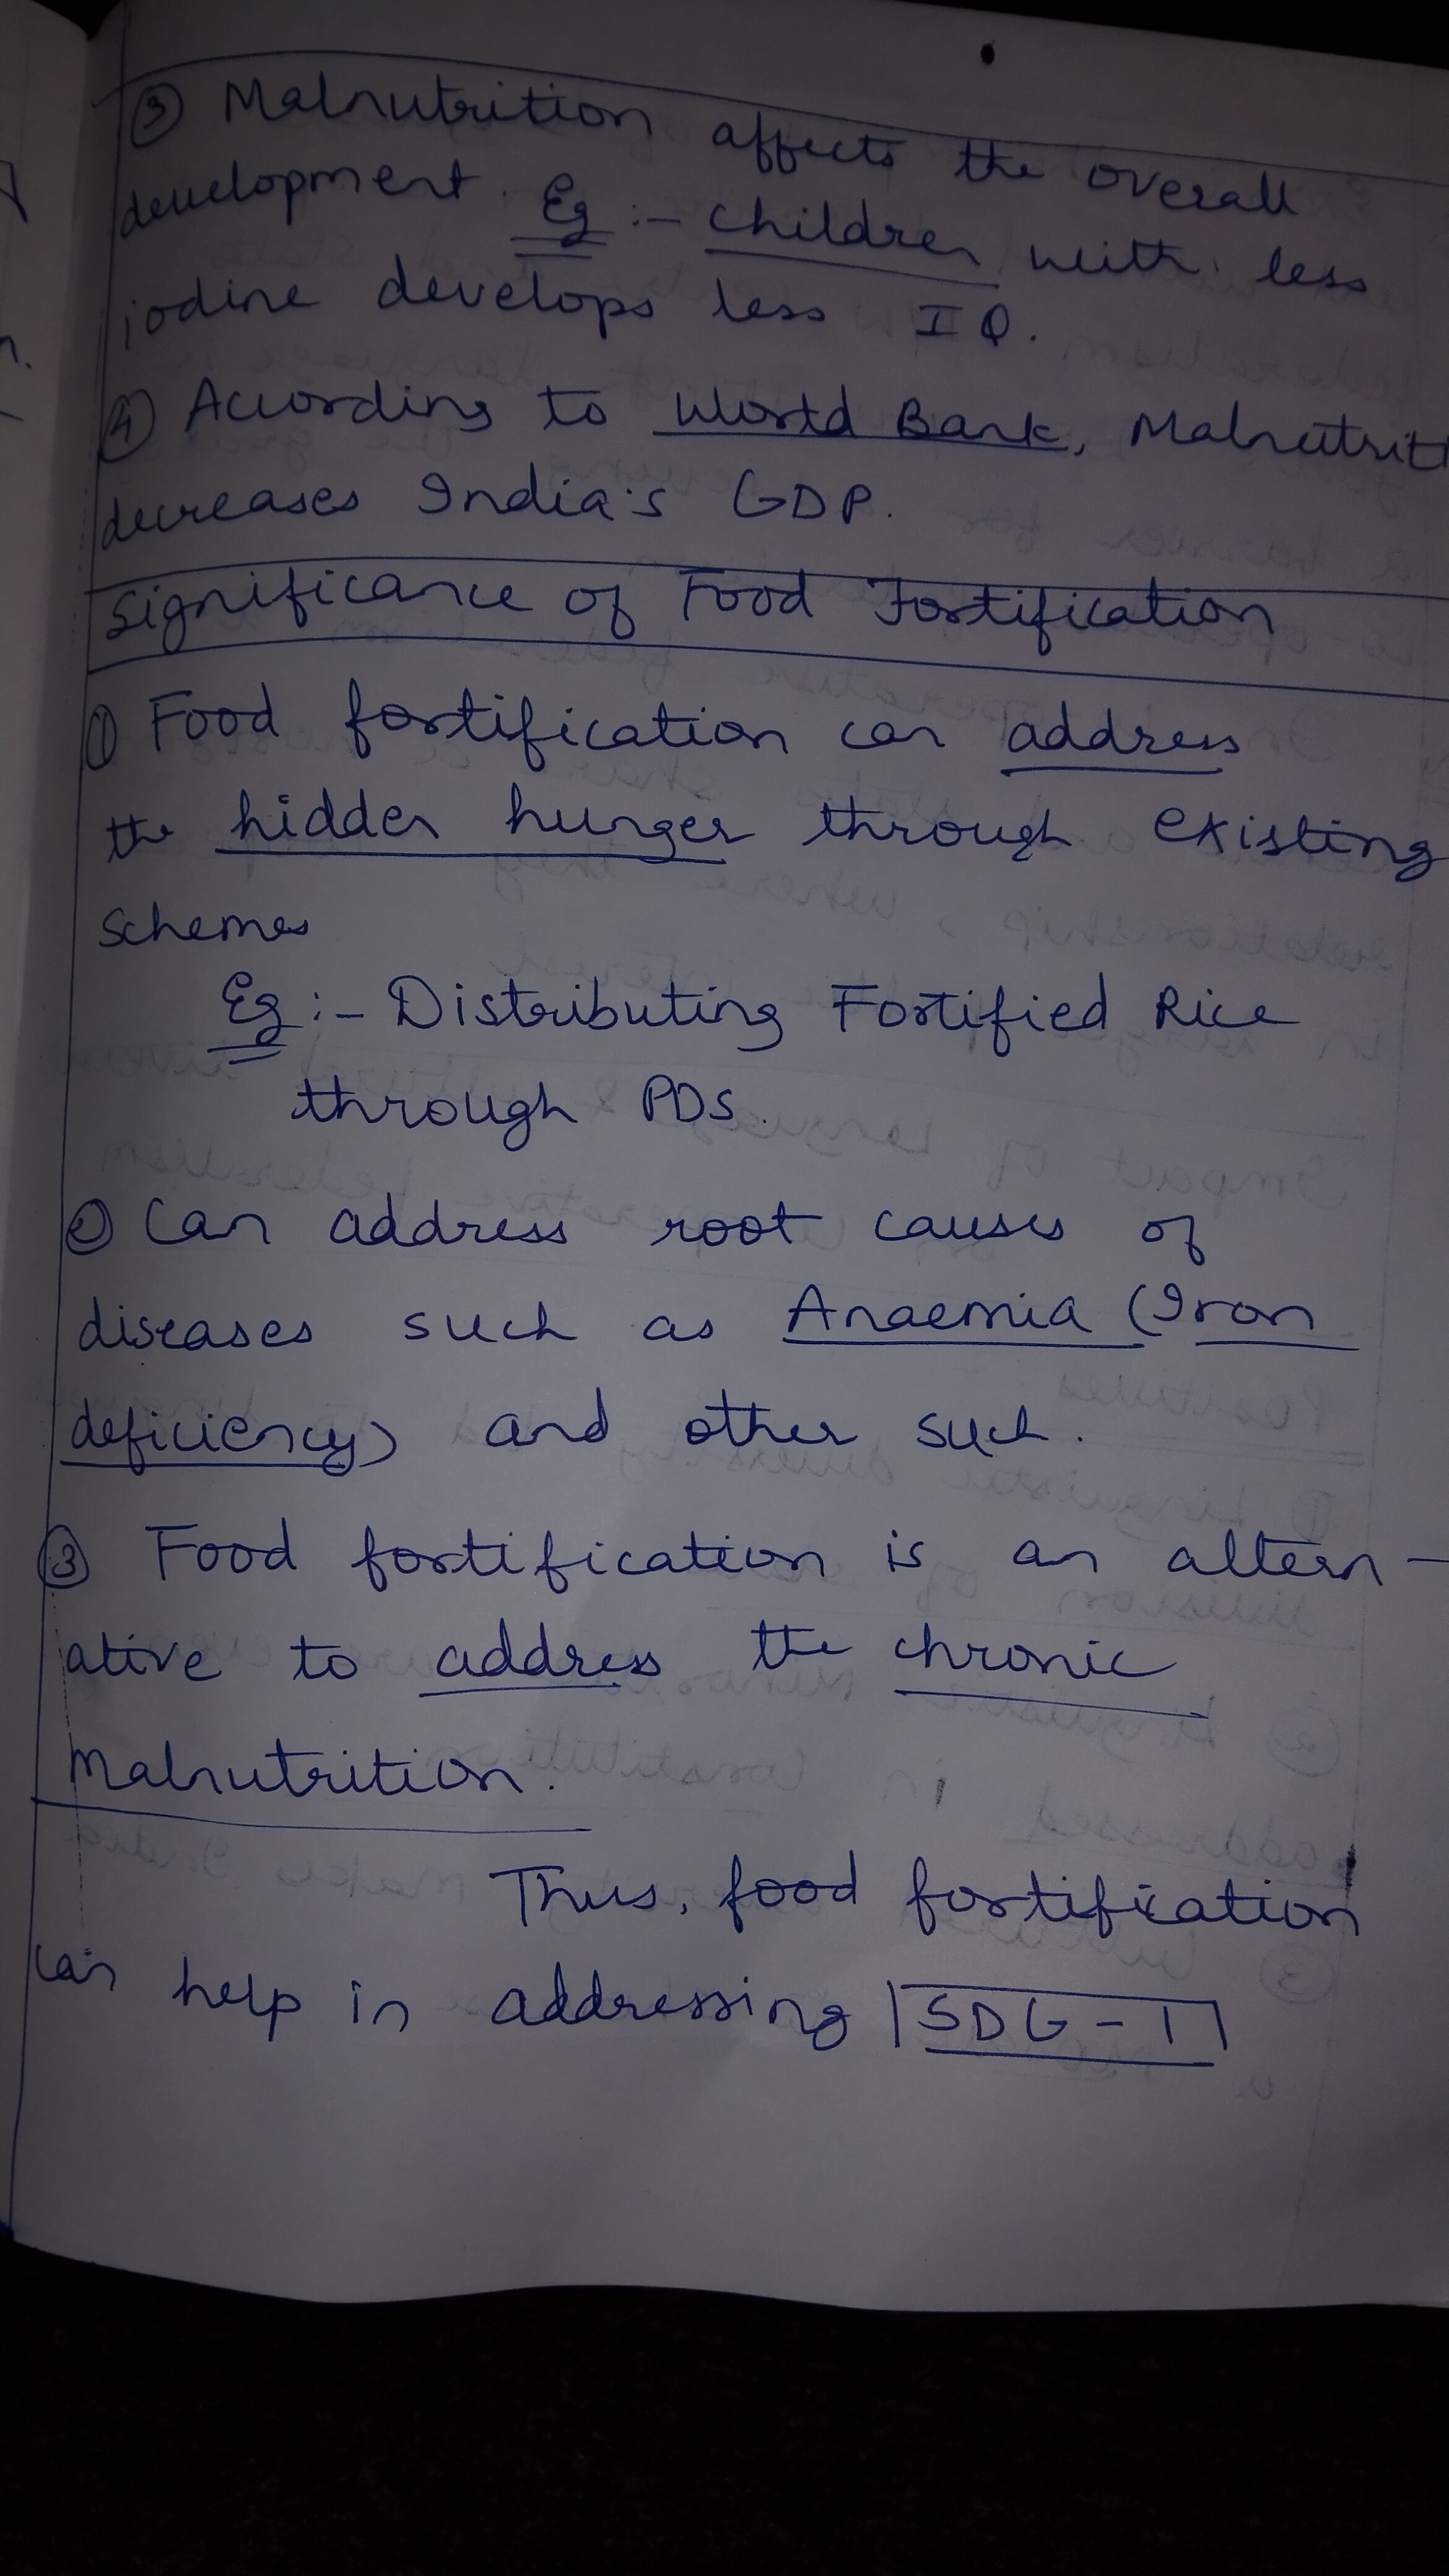 ③ Malnutrition affects the overall
development. Eg :- Children with less
iodine develops less IQ.
④ According to World Bank, Malnutrit
decreases India's GDP.
Significance of Food Fortification
① Food fortification can address
the hidden hunger through existing
schemes
Eg :- Distributing Fortified Rice
through PDS.
② Can address root causes of
diseases such as Anaemia (Iron
deficiency) and other such.
③ Food fortification is an altern-
ative to address the chronic
Malnutrition.
Thus, food fortification
can help in addressing SDG-1